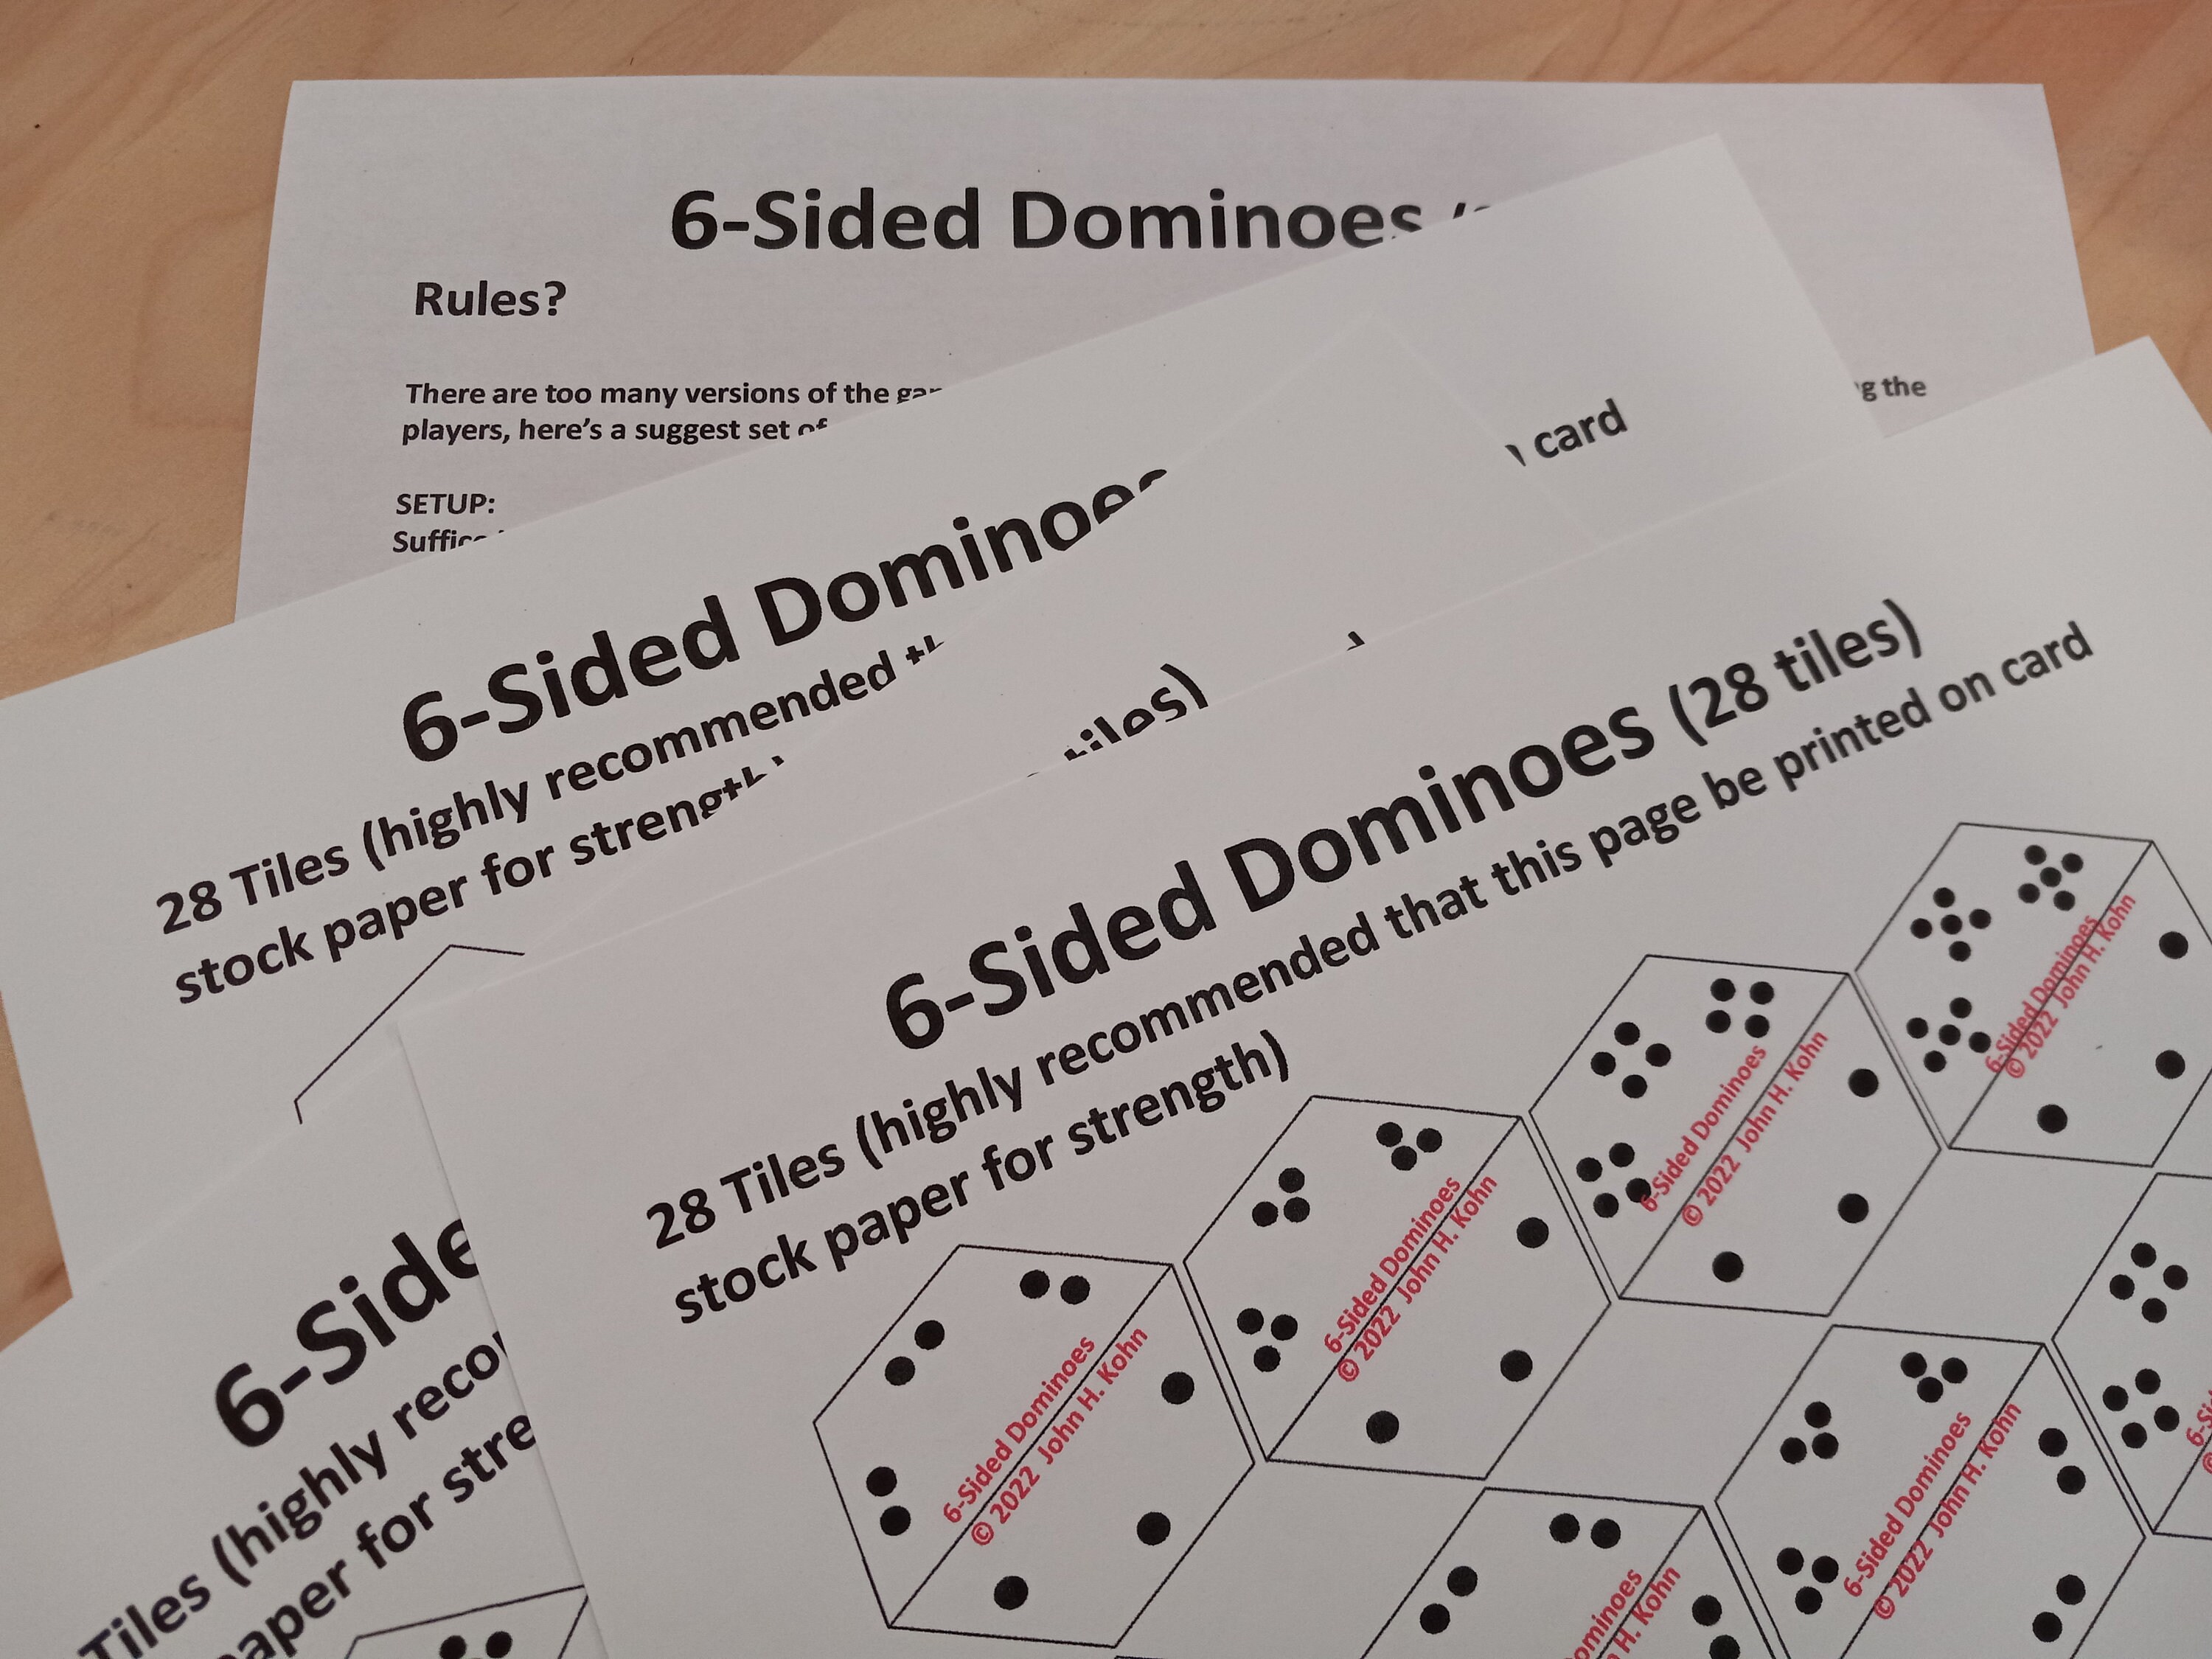 6-Sided Dominoes
Rules?
There are too many versions of the
g the
players, here's a suggest set of
SETUP:
card
6-Sided Dominoes
28 Tiles (highly recommended
stock paper for strength
tiles)
6-Sided Dominoes (28 tiles)
28 Tiles (highly recommended that this page be printed on card
stock paper for strength)
6-Side
Tiles (highly reco
paper for stre
6-Sided Dominoes
© 2022 John H. Kohn
6-Sided Dominoes
© 2022 John H. Kohn
6-Sided Dominoes
© 2022 John H. Kohn
6-Sided Dominoes
© 2022 John H. Kohn
6-Sided Dominoes
© 2022 John H. Kohn
ominoes
H. Kohn
6-Si
©